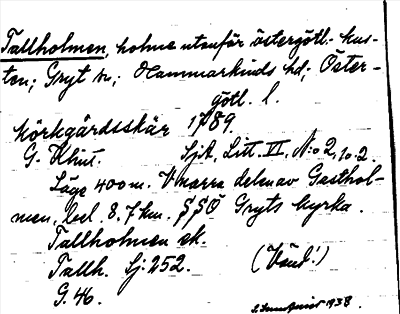 Tallholmen, holme utanför östergötl.- kus-
ten; Gryt sn; Hammarkinds hd; Öster-
götl. l.
Körkgårdsskär 1789.
G. Klint. SjA, Litt. VI, N:o 2, 1o 2.
Läge 400 m. V norra delen av Gasthol-
men, bel. 8.7 km. SSÖ Gryts kyrka.
Tallholmen ek.
Tallh. Sj: 252. (Vänd!)
G. 46.
1938.